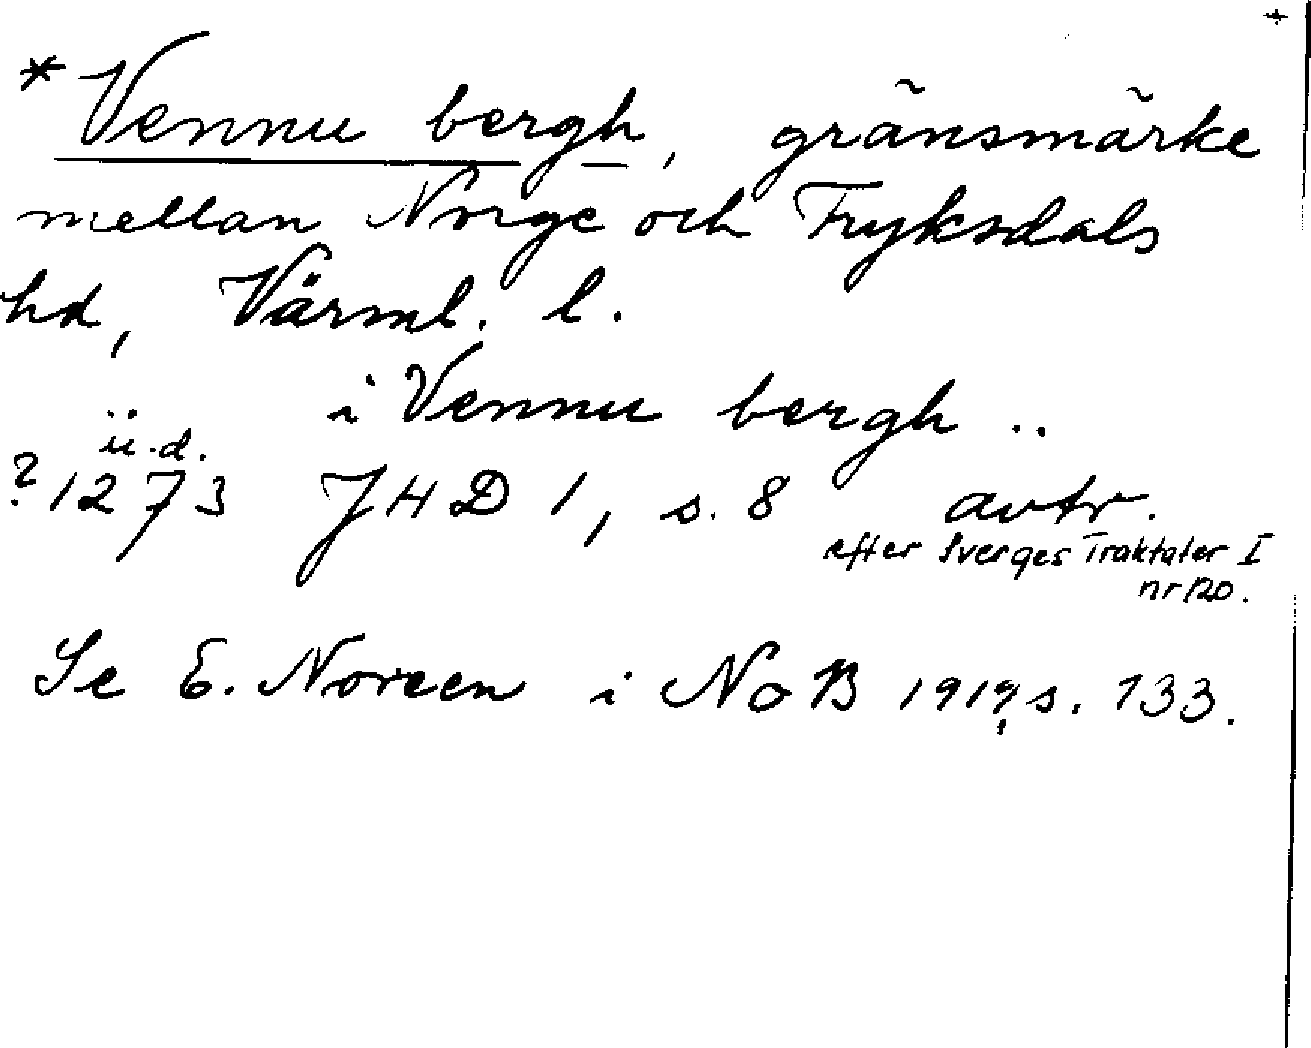 +
*Vennu bergh, gränsmärke
mellan Norge och Fryksdals
hd, Värml. l.
.. i Vennu bergh ..
u.d.
? 1273 JHD 1, s. 8 avtr.
efter Sverges Traktater I
nr 120.
Se E. Noreen i NoB 1919, s. 133.